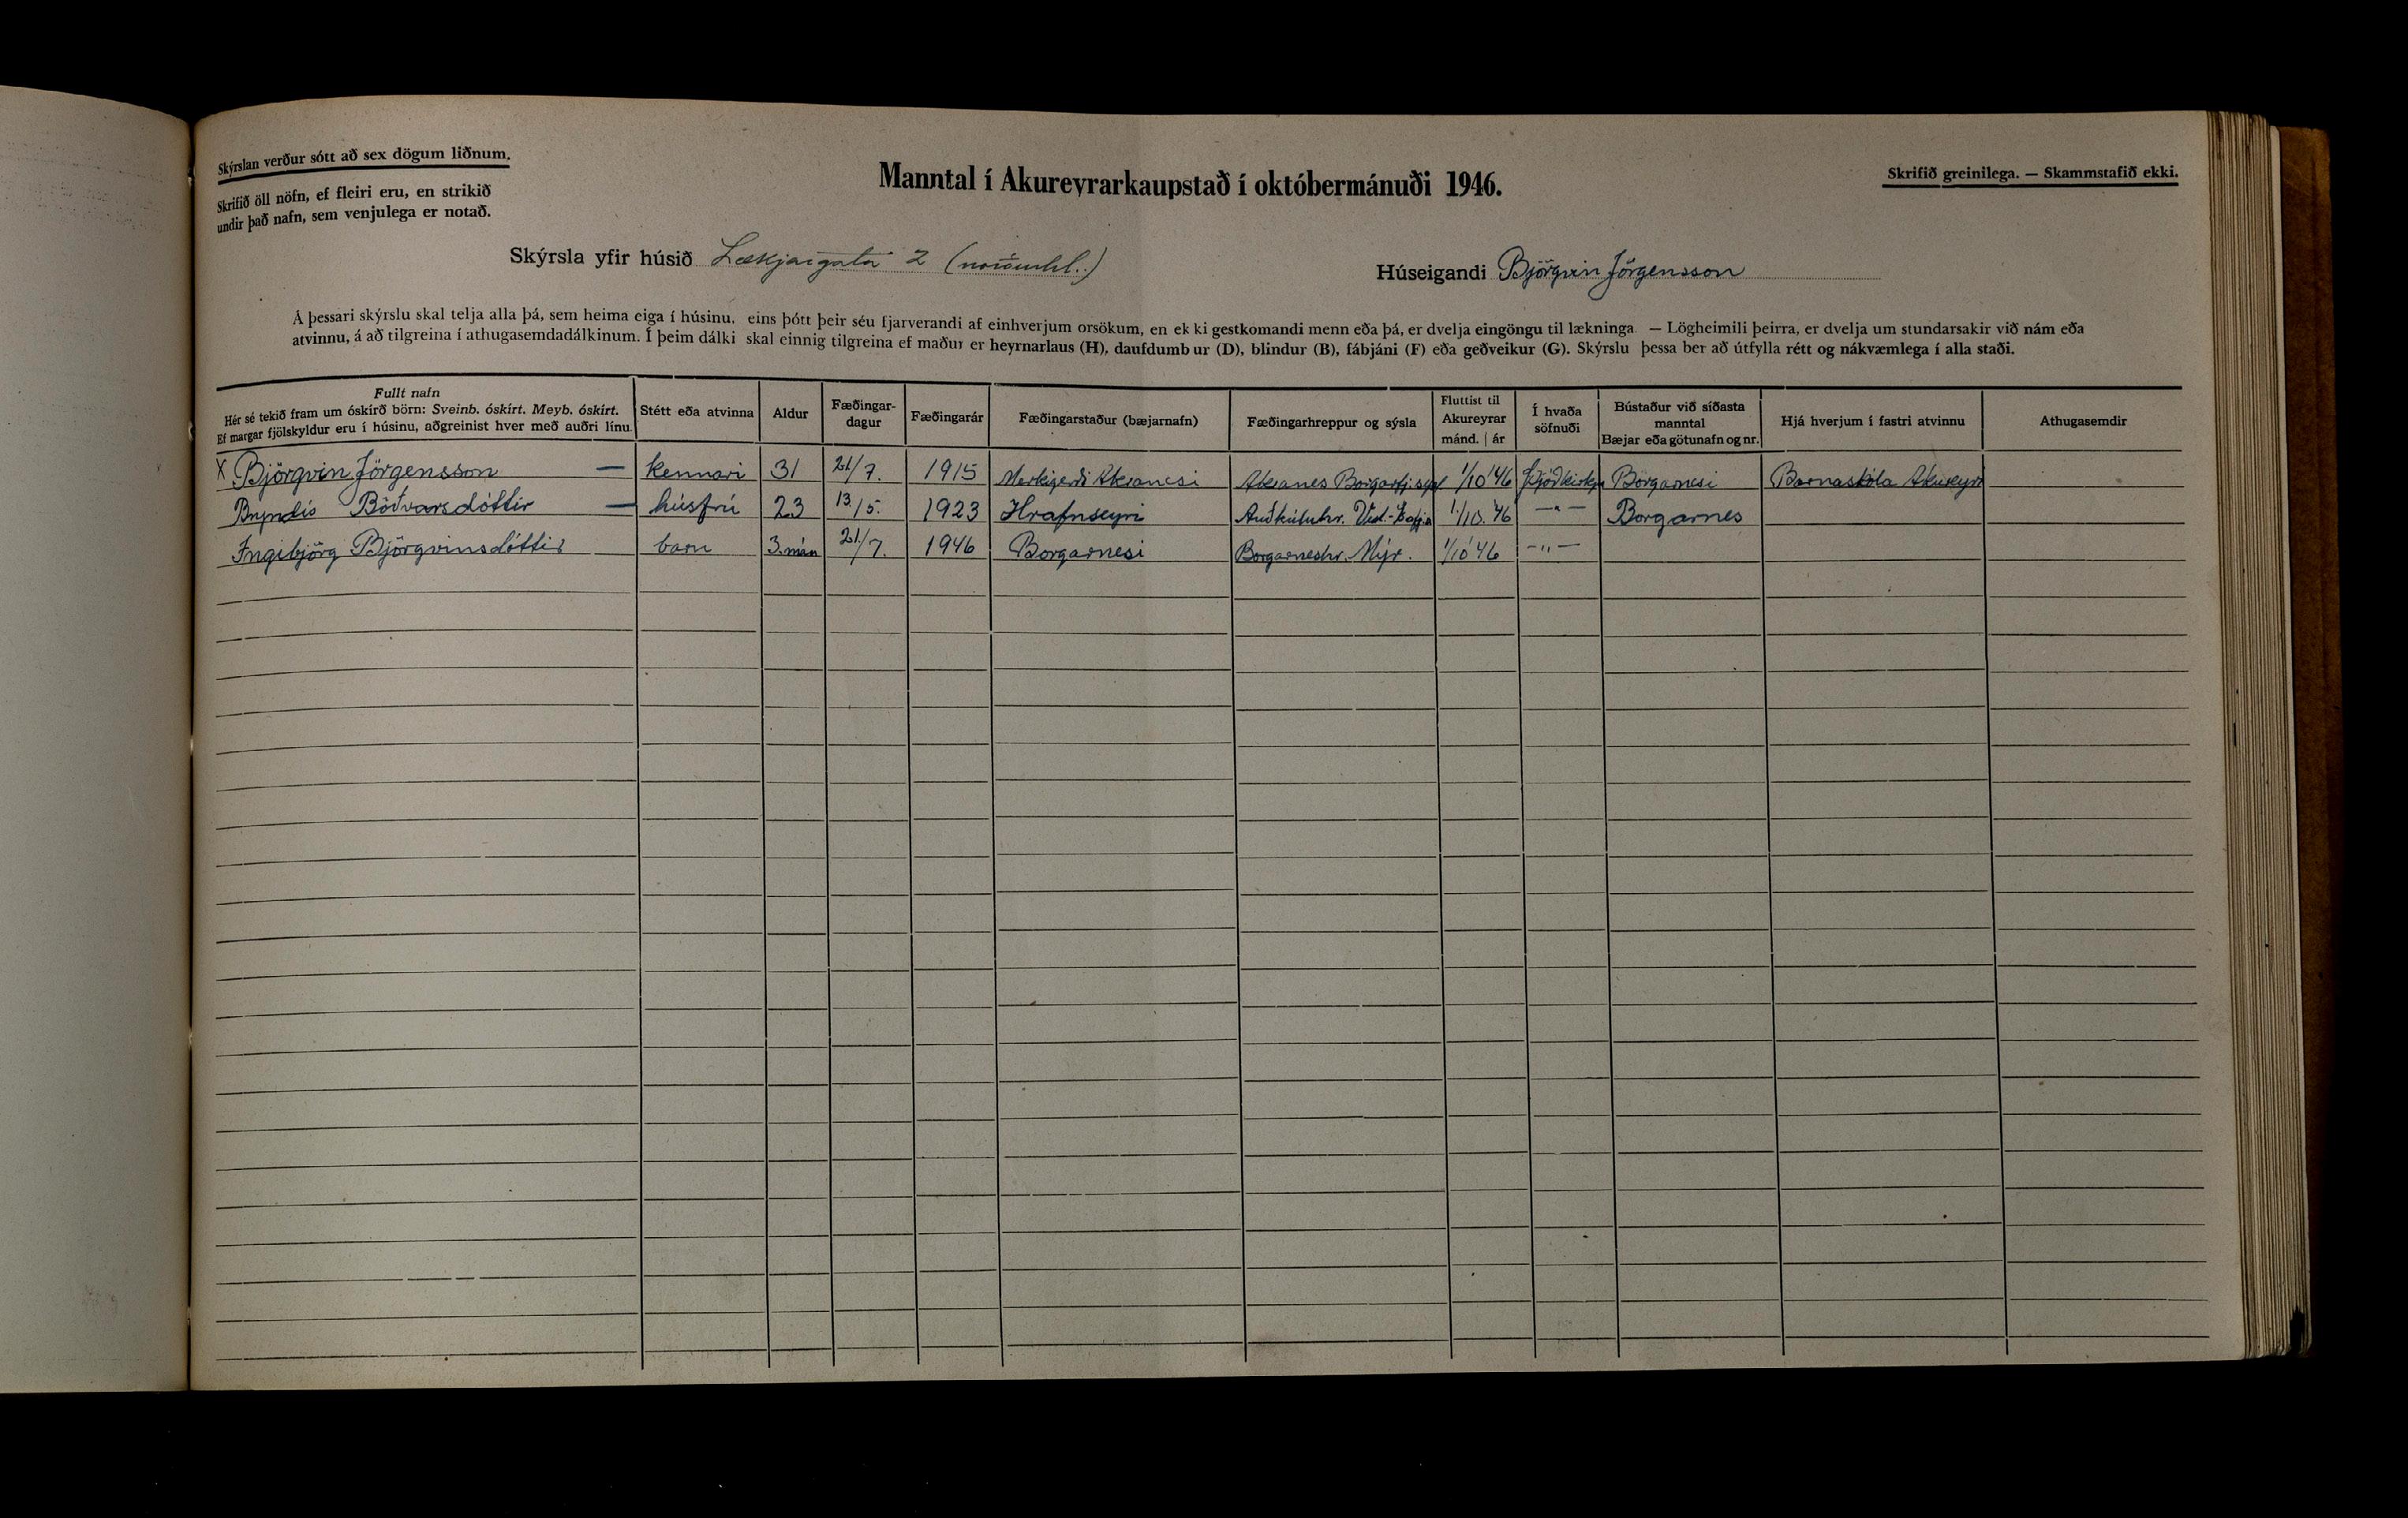 Skýrslan verður sótt að sex dögum liðnum.
Skrifið öll nöfn, ef fleiri eru, en strikið
undir það nafn, sem venjulega er notað.
Manntal í Akureyrarkaupstað í októbermánuði 1946.
Skrifið greinilega. — Skammstafið ekki.
Skýrsla yfir húsið Lækjargata 2 (norðurhl.)
Húseigandi Björgvin Jörgensson
Á þessari skýrslu skal telja alla þá, sem heima eiga í húsinu, eins þótt þeir séu fjarverandi af einhverjum orsökum, en ek ki gestkomandi menn eða þá, er dvelja eingöngu til lækninga. — Lögheimili þeirra, er dvelja um stundarsakir við nám eða
atvinnu, á að tilgreina í athugasemdadálkinum. Í þeim dálki skal einnig tilgreina ef maður er heyrnarlaus (H), daufdumb ur (D), blindur (B), fábjáni (F) eða geðveikur (G). Skýrslu þessa ber að útfylla rétt og nákvæmlega í alla staði.
Fullt nafn
Hér sé tekið fram um óskírð börn: Sveinb. óskírt. Meyb. óskírt.
Ef margar fjölskyldur eru í húsinu, aðgreinist hver með auðri línu.
Stétt eða atvinna
Aldur
Fæðingar-
dagur
Fæðingarár
Fæðingarstaður (bæjarnafn)
Fæðingarhreppur og sýsla
Fluttist til
Akureyrar
mánd. | ár
Í hvaða
söfnuði
Bústaður við síðasta
manntal
Bæjar eða götunafn og nr.
Hjá hverjum í fastri atvinnu
Athugasemdir
X Björgvin Jörgensson — kennari 31 21/7. 1915 Merkigerði Akranesi Akranes Borgarfj.sýsl 1/10 '46 Þjóðkirkju Borgarnesi Barnaskóla Akureyri
Bryndís Böðvarsdóttir — húsfrú 23 13./5. 1923 Hrafnseyri Auðkúluhr. 1/10. '46 —"— Borgarnes
Ingibjörg Björgvinsdóttir barn 3. mán 21./7. 1946 Borgarnesi Borgarneshr. Mýr. 1/10 '46 —"—